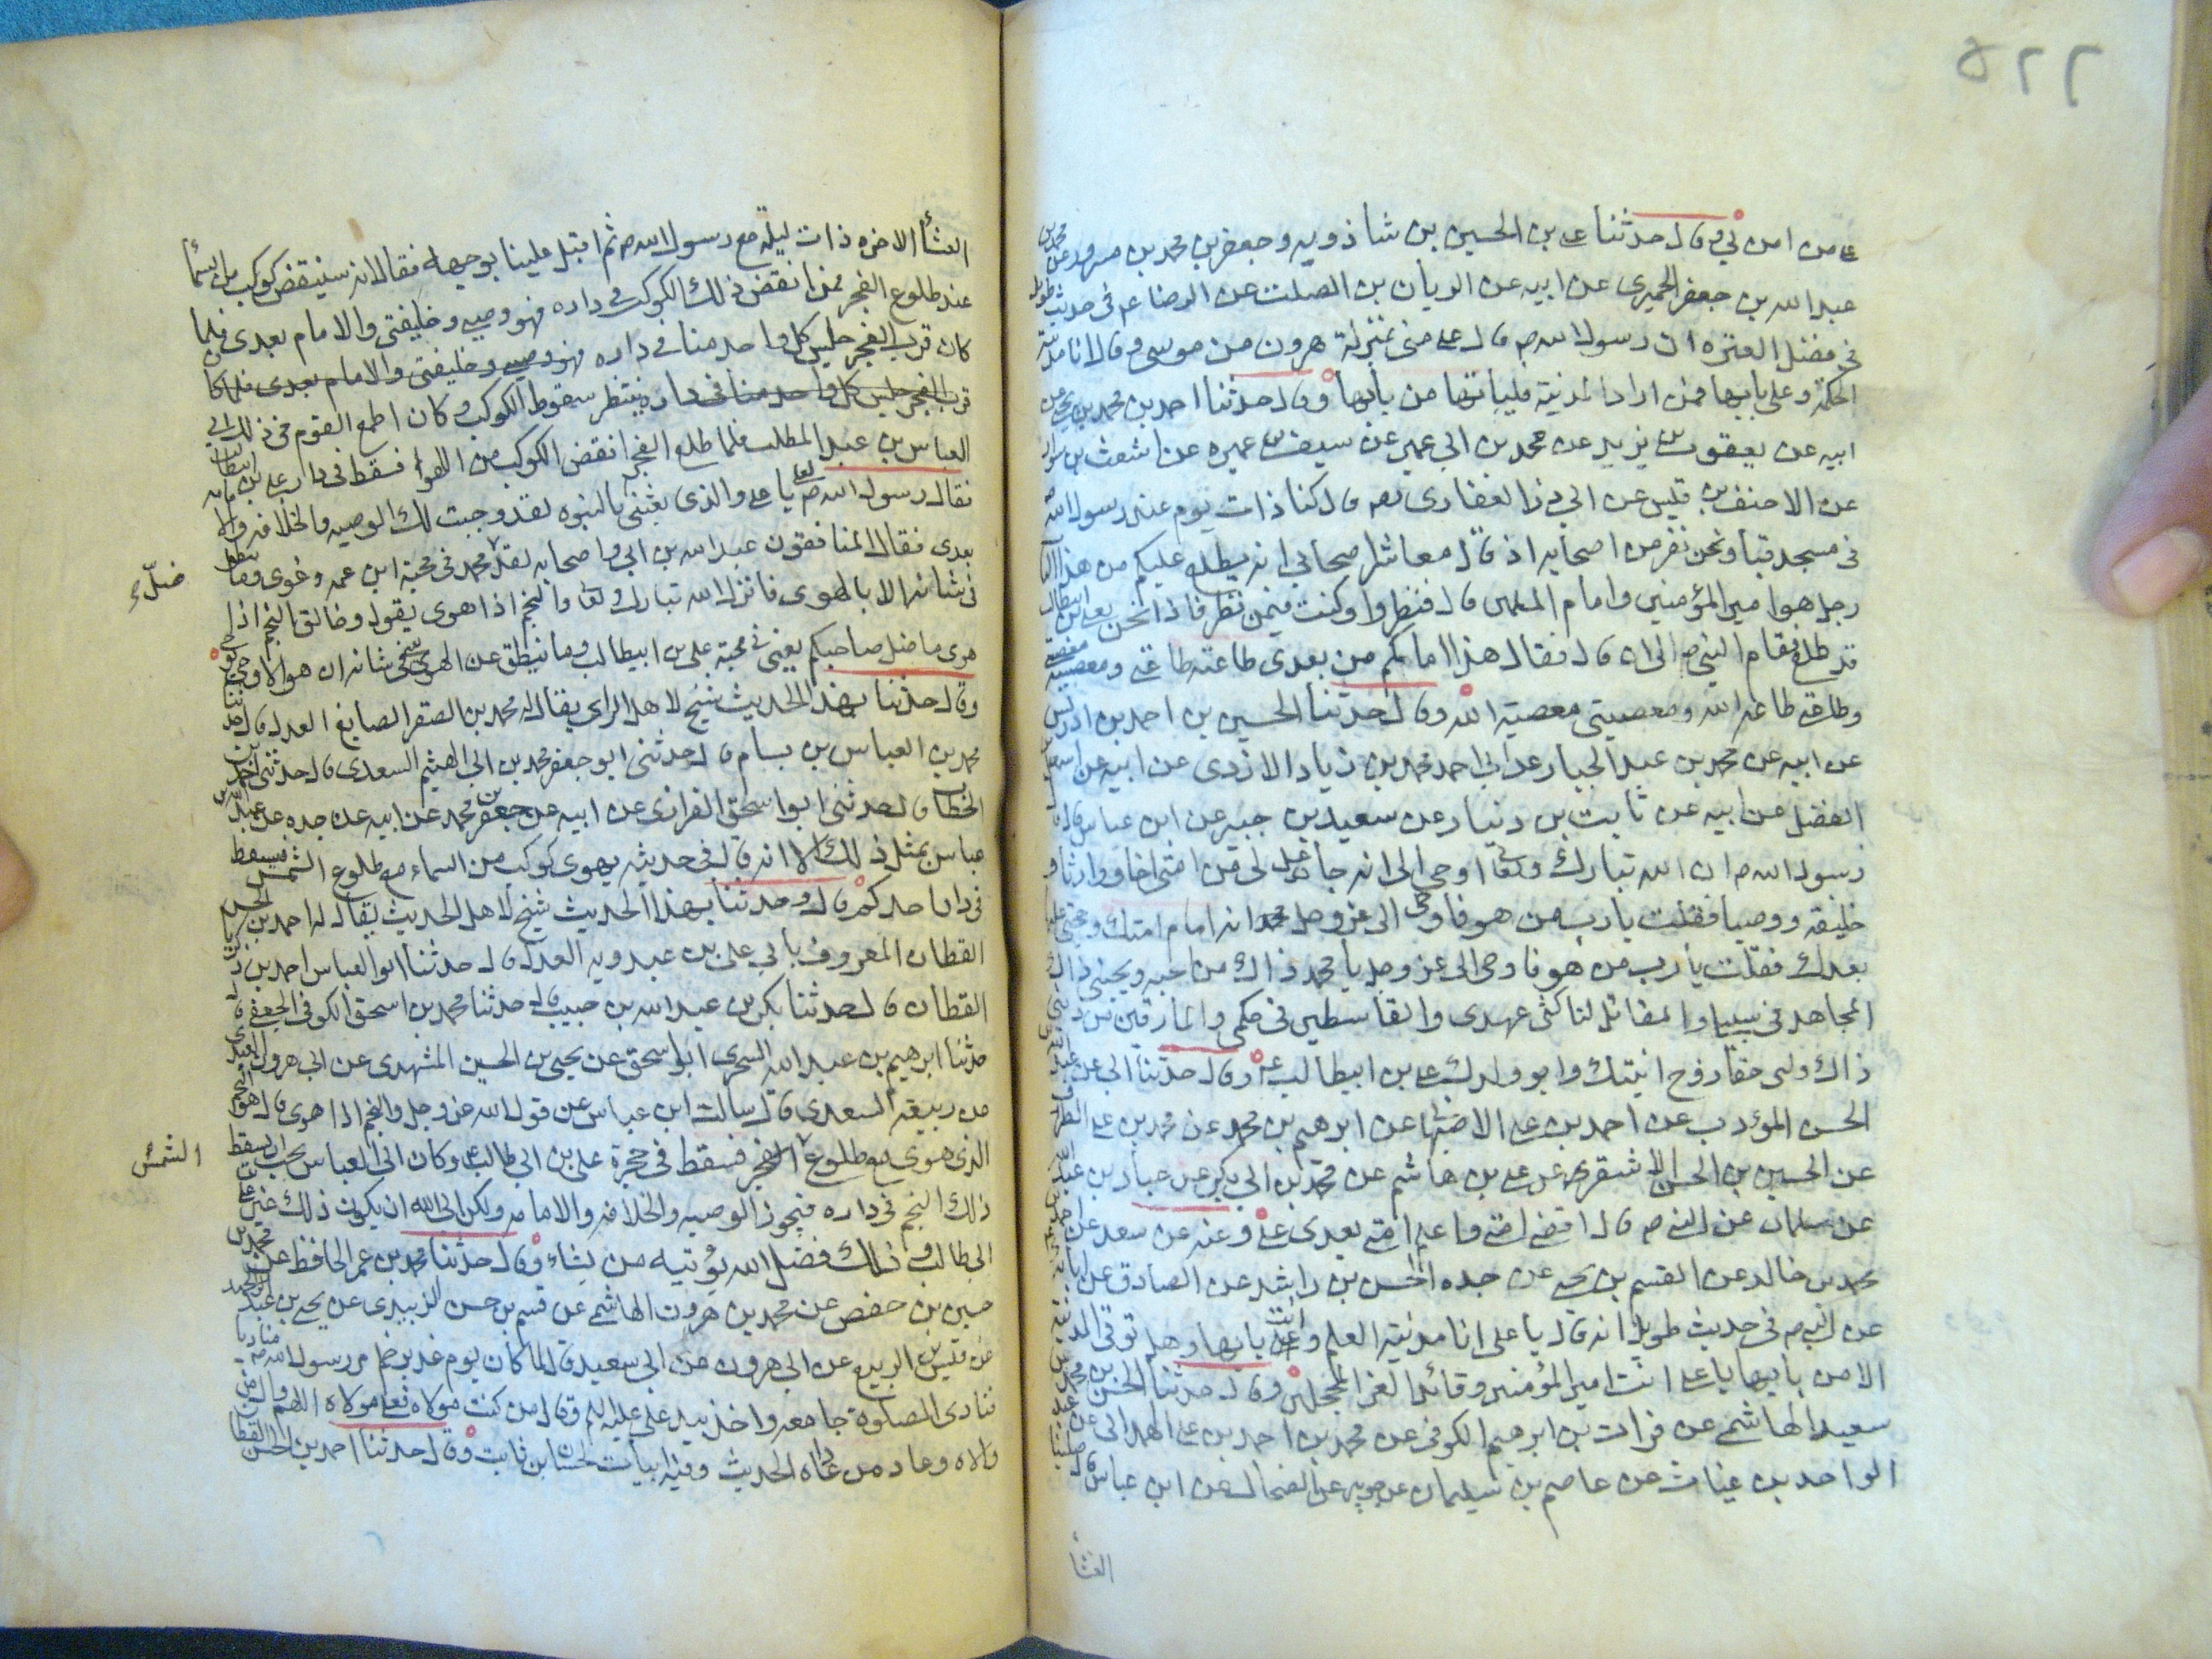 ٥٢٢
على من امن بي وقال حدثنا على بن الحسين بن شاذويه وجعفر بن محمد بن مسرور عن محمد بن
عبد الله بن جعفر الحميرى عن ابيه عن الريان بن الصلت عن الرضا ع فى حديث طويل
فى فضل العترة ان رسول الله ص قال على منى بمنزلة هرون من موسى وقال انا مدينة
الحكمة وعلى بابها فمن اراد المدينة فلياتها من بابها وقال حدثنا احمد بن محمد بن يحيى عن
ابيه عن يعقوب بن يزيد عن محمد بن ابى عمير عن سيف بن عميره عن اشعث بن سوار
عن الاحنف بن قيس عن ابى ذر الغفارى قال كنا ذات يوم عند رسول الله ص
فى مسجد قبا ونحن نفر من اصحابه اذ قال معاشر اصحابى انه يطلع عليكم من هذا الباب
رجل هو امير المؤمنين وامام المسلمين قال فنظروا وكنت فيمن نظر فاذا نحن بعلى بن ابيطالب
قد طلع فقام النبى ص الى ان قال فقال هذا امامكم من بعدى طاعته طاعتى ومعصيته معصيتى
وطاعتى طاعة الله ومعصيتى معصية الله وقال حدثنا الحسين بن احمد بن ادريس
عن ابيه عن محمد بن عبد الجبار عن ابى احمد محمد بن زياد الازدى عن ابيه عن
الفضل عن ابيه عن ثابت بن دنيار عن سعيد بن جبير عن ابن عباس قال قال
رسول الله ص ان الله تبارك وتعالى اوحى الى انه جاعل لى من امتى اخا ووارثا و
خليفة ووصيا فقلت يا رب من هو فاوحى الى عز وجل يا محمد انه امام امتك وحجتى عليها
بعدك فقلت يا رب من هو فاوحى الى عز وجل يا محمد ذاك من احبه ويحبنى ذاك
المجاهد فى سبيلى والمقاتل لناكثى عهدى والقاسطين فى حكمى والمارقين من دينى
ذاك وليى حقا زوج ابنتك وابو ولدك على بن ابيطالب وقال حدثنا ابى عن
الحسن المؤدب عن احمد بن على الاصبهانى عن ابرهيم بن محمد عن محمد بن على
عن الحسين بن الحسن الاشقر عن على بن هاشم عن محمد بن ابى بكر عن عباد بن عبد الله
عن سلمان عن النبى ص قال اقضى امتى واعلم امتى بعدى على وعنه عن سعد عن
محمد بن خالد عن القسم بن يحيى عن جده الحسن بن راشد عن الصادق عن ابائه
عن النبى ص فى حديث طويل انه قال يا على انا مدينة العلم وانت بابها وهل تؤتى المدينة
الا من بابها يا على انت امير المؤمنين وقائد الغر المحجلين وقال حدثنا الحسن بن محمد بن
سعيد الهاشمى عن فرات بن ابرهيم الكوفى عن محمد بن احمد بن على الهمدانى عن
الواحد بن غياث عن عاصم بن سليمان عن جويبر عن الضحاك عن ابن عباس قال
العشأ
العشأ الاخره ذات ليلة مع رسول الله ص ثم اقبل علينا بوجهه فقال انه سينقض كوكب من السمأ
عند طلوع الفجر فمن انقض ذلك الكوكب فى داره فهو وصيى وخليفتى والامام بعدى فلما
كان قرب الفجر جلس كل واحد منا فى داره فهو وصيى وخليفتى والامام بعدى فلما كان
قرب الفجر جلس كل واحد منا فى داره ينتظر سقوط الكوكب وكان اطمع القوم فى ذلك ابى
العباس بن عبد المطلب فلما طلع الفجر انقض الكوكب من الهوا فسقط فى دار على بن ابيطالب
فقال رسول الله ص لعلى يا على والذى بعثنى بالنبوه لقد وجبت لك الوصيه والخلافه والامامه
بعدى فقال المنافقون عبد الله بن ابى واصحابه لقد ضل محمد فى محبة ابن عمه وغوى وما ينطق
فى شانه الا بالهوى فانزل الله تبارك وتعالى والنجم اذا هوى يقول وخالق النجم اذا
هوى ما ضل صاحبكم يعنى فى محبة على بن ابيطالب وما ينطق عن الهوى يعنى فى شانه ان هو الا وحى يوحى
وقال حدثنا بهذا الحديث شيخ لاهل الراى يقال له محمد بن الصقر الصايغ العدل قال حدثنا
محمد بن العباس بن بسام قال حدثنى ابو جعفر محمد بن ابى الهيثم السعدى قال حدثنى احمد بن
الخطاب قال حدثنى ابو اسحق الفزارى عن ابيه عن جعفر بن محمد عن ابيه عن جده عن عبد الله بن
عباس بمثل ذلك الا انه قال فى حديثه يهوى كوكب من السماء مع طلوع الشمس فيسقط
فى دار احدكم قال وحدثنا بهذا الحديث شيخ لاهل الحديث يقال له احمد بن الحسن
القطان المعروف بابى على بن عبدويه العدل قال حدثنا ابو العباس احمد بن زكريا
القطان قال حدثنا بكر بن عبد الله بن حبيب قال حدثنا محمد بن اسحق الكوفى الجعفى قال
حدثنا ابرهيم بن عبد الله السحرى ابو اسحق عن يحيى بن الحسين المشهدى عن ابى هرون العبدى
عن ربيعة السعدى قال سالت ابن عباس عن قول الله عز وجل والنجم اذا هوى قال هو النجم
الذى هوى مع طلوع الفجر فسقط فى حجرة على بن ابى طالب وكان ابى العباس يحب ان يسقط
ذلك النجم فى داره فيحوز الوصيه والخلافه والامامه ولكن ابى الله ان يكون ذلك غير على بن
ابى طالب وذلك فضل الله يؤتيه من يشاء وقال حدثنا محمد بن عمر الحافظ عن محمد بن
حسين بن حفص عن محمد بن هرون الهاشمى عن قسيم بن حسن الزبيدى عن يحيى بن عبد الحميد
عن قيس بن الربيع عن ابى هرون عن ابى سعيد قال لما كان يوم غدير خم امر رسول الله ص مناديا
فنادى الصلوة جامعه واخذ بيد على عليه السلم وقال من كنت مولاه فعلى مولاه اللهم وال من
والاه وعاد من عاداه الحديث وفيه ابيات لحسان بن ثابت وقال حدثنا احمد بن الحسن القطان
ضلّ
الشمس